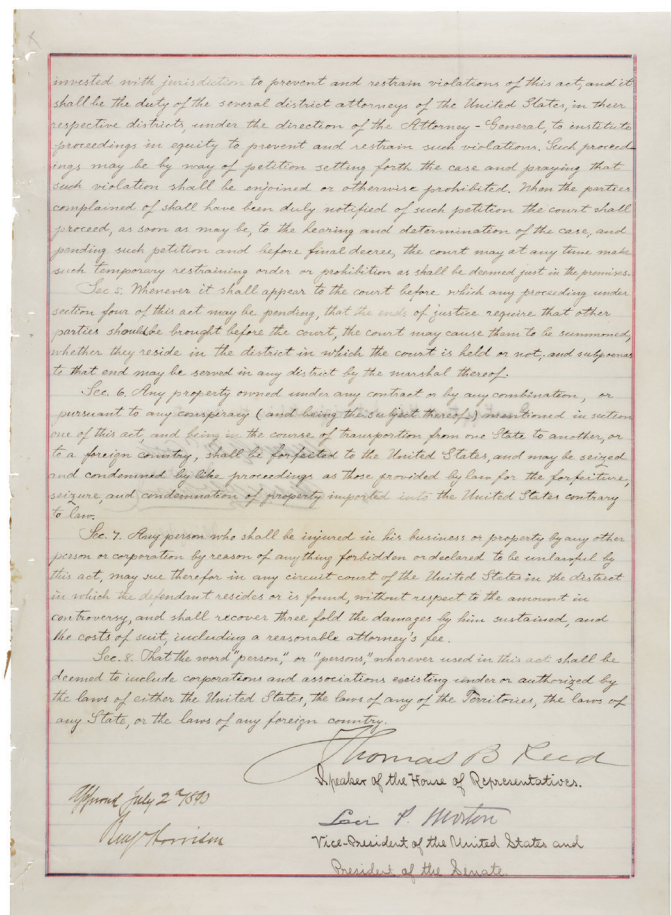 invested with jurisdiction to prevent and restrain violations of this act, and it
shall be the duty of the several district attorneys of the United States, in their
respective districts, under the direction of the Attorney-General, to institute
proceedings in equity to prevent and restrain such violations. Such proceed-
ings may be by way of petition setting forth the case and praying that
such violation shall be enjoined or otherwise prohibited. When the parties
complained of shall have been duly notified of such petition the court shall
proceed, as soon as may be, to the hearing and determination of the case, and
pending such petition and before final decree, the court may at any time make
such temporary restraining order or prohibition as shall be deemed just in the premises.
Sec. 5. Whenever it shall appear to the court before which any proceeding under
section four of this act may be pending, that the ends of justice require that other
parties should be brought before the court, the court may cause them to be summoned,
whether they reside in the district in which the court is held or not; and subpoenas
to that end may be served in any district by the marshal thereof.
Sec. 6. Any property owned under any contract or by any combination, or
pursuant to any conspiracy (and being the subject thereof) mentioned in section
one of this act, and being in the course of transportion from one State to another, or
to a foreign country, shall be forfeited to the United States, and may be seized
and condemned by like proceedings as those provided by law for the forfeiture,
seizure, and condemnation of property imported into the United States contrary
to law.
Sec. 7. Any person who shall be injured in his business or property by any other
person or corporation by reason of anything forbidden or declared to be unlawful by
this act, may sue therefor in any circuit court of the United States in the district
in which the defendant resides or is found, without respect to the amount in
controversy, and shall recover three fold the damages by him sustained, and
the costs of suit, including a reasonable attorney's fee.
Sec. 8. That the word "person," or "persons," wherever used in this act shall be
deemed to include corporations and associations existing under or authorized by
the laws of either the United States, the laws of any of the Territories, the laws of
any State, or the laws of any foreign country.
Thomas B Reed
Speaker of the House of Representatives.
Approved July 2d 1890
Benj Harrison
Levi P. Morton
Vice-President of the United States and
President of the Senate.